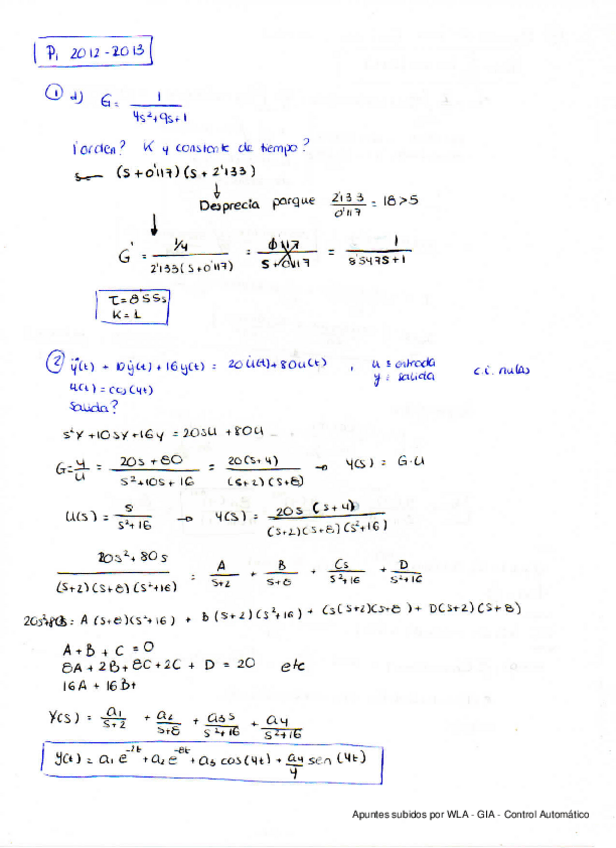 P₁ 2012-2013
① d) G = 1 / (4s²+9s+1)
¿orden? K y constante de tiempo?
(s+0'117)(s+2'133)
↓
Desprecia parque 2'133 / 0'117 = 18 > 5
↓
G' = 1/4 / (2'133(s+0'117)) = 0'117 / (s+0'117) = 1 / (8'547s+1)
τ=8'55s
K=1
② ÿ(t) + 10ẏ(t) + 16y(t) = 20u̇(t)+80u(t) , u ≡ entrada c.i. nulas
y = salida
u(t) = cos(4t)
Salida?
s²Y+10sY+16Y = 20sU+80U
G = Y/U = (20s+80) / (s²+10s+16) = 20(s+4) / ((s+2)(s+8)) → Y(s) = G·U
U(s) = s / (s²+16) → Y(s) = 20s (s+4) / ((s+2)(s+8)(s²+16))
(20s²+80s) / ((s+2)(s+8)(s²+16)) = A/(s+2) + B/(s+8) + Cs/(s²+16) + D/(s²+16)
20s²+80s = A(s+8)(s²+16) + B(s+2)(s²+16) + Cs(s+2)(s+8) + D(s+2)(s+8)
A+B+C = 0
8A+2B+8C+2C+D = 20 etc
16A+16B+
Y(s) = a₁/(s+2) + a₂/(s+8) + a₃s/(s²+16) + a₄/(s²+16)
y(t) = a₁e⁻²ᵗ + a₂e⁻⁸ᵗ + a₃cos(4t) + a₄/4 sen(4t)
Apuntes subidos por WLA - GIA - Control Automático